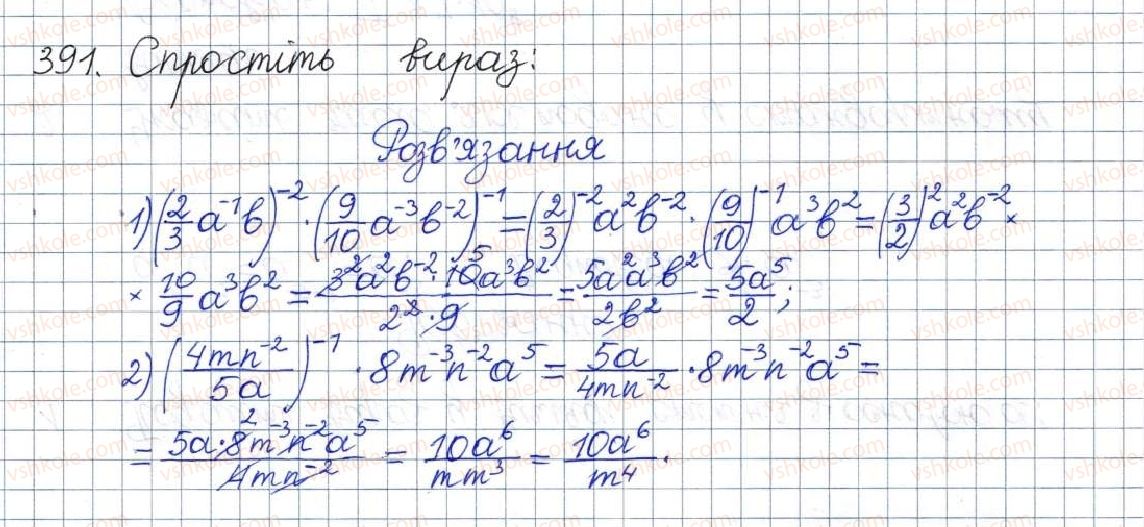 391. Спростіть вираз:
Розв'язання
1) (2/3 a⁻¹b)⁻² · (9/10 a⁻³b⁻²)⁻¹ = (2/3)⁻² a²b⁻² · (9/10)⁻¹ a³b² = (3/2)² a²b⁻² ×
× 10/9 a³b² = (3²a²b⁻² · 10⁵a³b²)/(2² · 9) = (5a²a³b²)/(2b²) = 5a⁵/2;
2) (4mn⁻²/5a)⁻¹ · 8m⁻³n⁻²a⁵ = 5a/4mn⁻² · 8m⁻³n⁻²a⁵ =
= (5a · 8²m⁻³n⁻²a⁵)/(4mn⁻²) = 10a⁶/mm³ = 10a⁶/m⁴.
vshkole.com